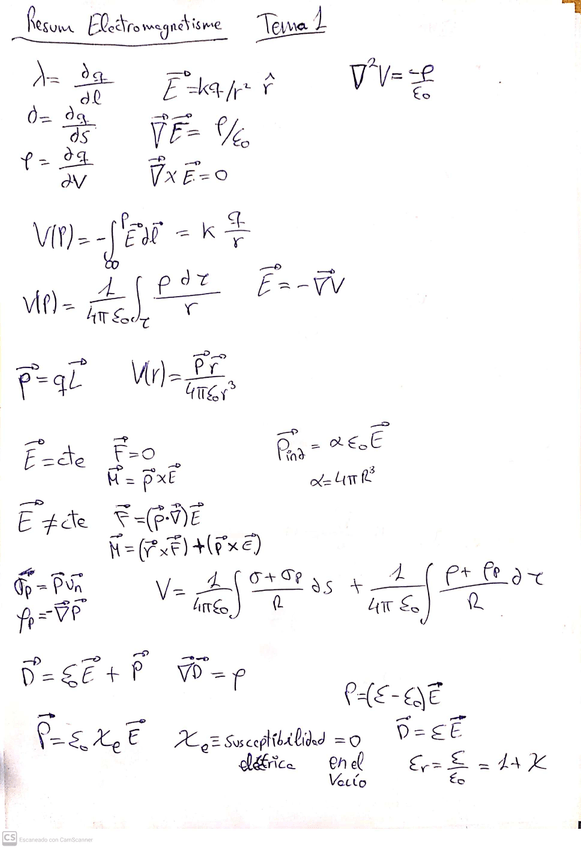 Resum Electromagnetisme Tema 1
λ = dq/dl E⃗ = kq/r² r̂ ∇²V = -ρ/ε₀
σ = dq/ds ∇⃗E⃗ = ρ/ε₀
ρ = dq/dV ∇⃗xE⃗ = 0
V(P) = -∫_∞^P E⃗dl⃗ = k q/r
V(P) = 1/4πε₀ ∫_τ ρdτ/r E⃗ = -∇⃗V
p⃗ = qL⃗ V(r) = p⃗r⃗/4πε₀r³
E⃗ = cte F⃗ = 0 p⃗ind = αε₀E⃗
M⃗ = p⃗xE⃗ α = 4πR³
E⃗ ≠ cte F⃗ = (p⃗·∇⃗)E⃗
M⃗ = (r⃗xF⃗) + (p⃗xE⃗)
σp = P⃗u⃗n V = 1/4πε₀ ∫ σ+σp/R ds + 1/4πε₀ ∫ ρ+ρp/R dτ
ρp = -∇⃗P⃗
D⃗ = ε₀E⃗ + P⃗ ∇⃗D⃗ = ρ
P = (ε-ε₀)E⃗
P⃗ = ε₀χeE⃗ χe ≡ Susceptibilidad = 0 D⃗ = εE⃗
eléctrica en el εr = ε/ε₀ = 1+χ
Vacío
CS Escaneado con CamScanner